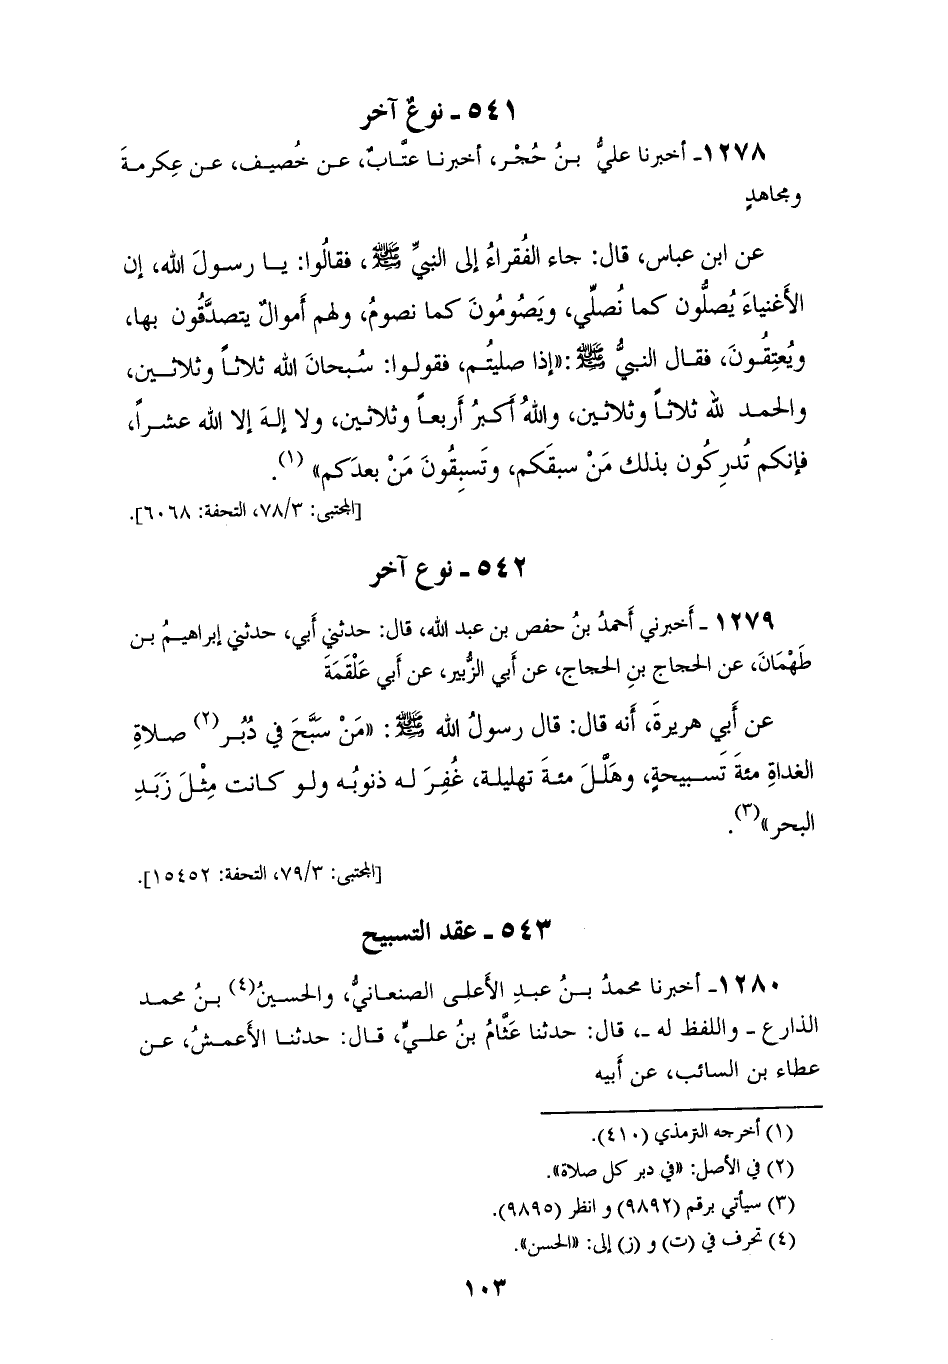 ٥٤١ ـ نوعٌ آخر
١٢٧٨ـ أخبرنا عليُّ بنُ حُجْر، أخبرنا عتَّابٌ، عـن خُصيف، عـن عِكرمـةَ
ومجاهدٍ
عن ابن عباس، قال: جاء الفُقراءُ إلى النبيِّ ﷺ، فقالُوا: يـا رسـولَ الله، إن
الأَغنياءَ يُصلُّون كما نُصلِّي، ويَصُومُونَ كما نصومُ، ولهم أَموالٌ يتصدَّقُون بها،
ويُعتِقُـونَ، فقـال النبيُّ ﷺ:«إذا صليتُـم، فقولـوا: سُبحانَ الله ثلاثـاً وثلاثـين،
والحمـد لله ثلاثـاً وثلاثـين، واللهُ أَكـبرُ أَربعـاً وثلاثـين، ولا إلـهَ إلا الله عشـراً،
فإنكم تُدرِكُون بذلك مَنْ سبقَكم، وتَسبِقُونَ مَنْ بعدَكم» (١).
[المجتبى: ٧٨/٣، التحفة: ٦٠٦٨].
٥٤٢ ـ نوع آخر
١٢٧٩ ـ أَخبرني أَحمدُ بنُ حفص بن عبد الله، قال: حدثني أَبي، حدثني إبراهيـمُ بـن
طَهْمَانَ، عن الحجاج بنِ الحجاج، عن أَبي الزُّبير، عن أَبي عَلْقَمَةَ
عن أَبي هريرةَ، أَنه قال: قال رسولُ الله ﷺ: «مَنْ سَبَّحَ في دُبُـر (٢) صـلاةِ
الغداةِ مئةَ تَسـبيحةٍ، وهَلَّـلَ مئـةَ تهليلـة، غُفِـرَ لـه ذنوبُـه ولـو كـانت مِثْـلَ زَبَـدِ
البحر»(٣).
[المجتبى: ٧٩/٣، التحفة: ١٥٤٥٢].
٥٤٣ ـ عقد التسبيح
١٢٨٠ـ أخبرنا محمدُ بـنُ عبـدِ الأَعلـى الصنعـانيُّ، والحسـينُ(٤) بـنُ محمـد
الذارع ـ واللفظ له ـ، قال: حدثنا عَثَّامُ بنُ علـيٍّ، قـال: حدثنـا الأَعمـشُ، عـن
عطاء بن السائب، عن أَبيه
(١) أخرجه الترمذي (٤١٠).
(٢) في الأصل: «في دبر كل صلاة».
(٣) سيأتي برقم (٩٨٩٢) و انظر (٩٨٩٥).
(٤) تحرف في (ت) و (ز) إلى: «الحسن».
١٠٣